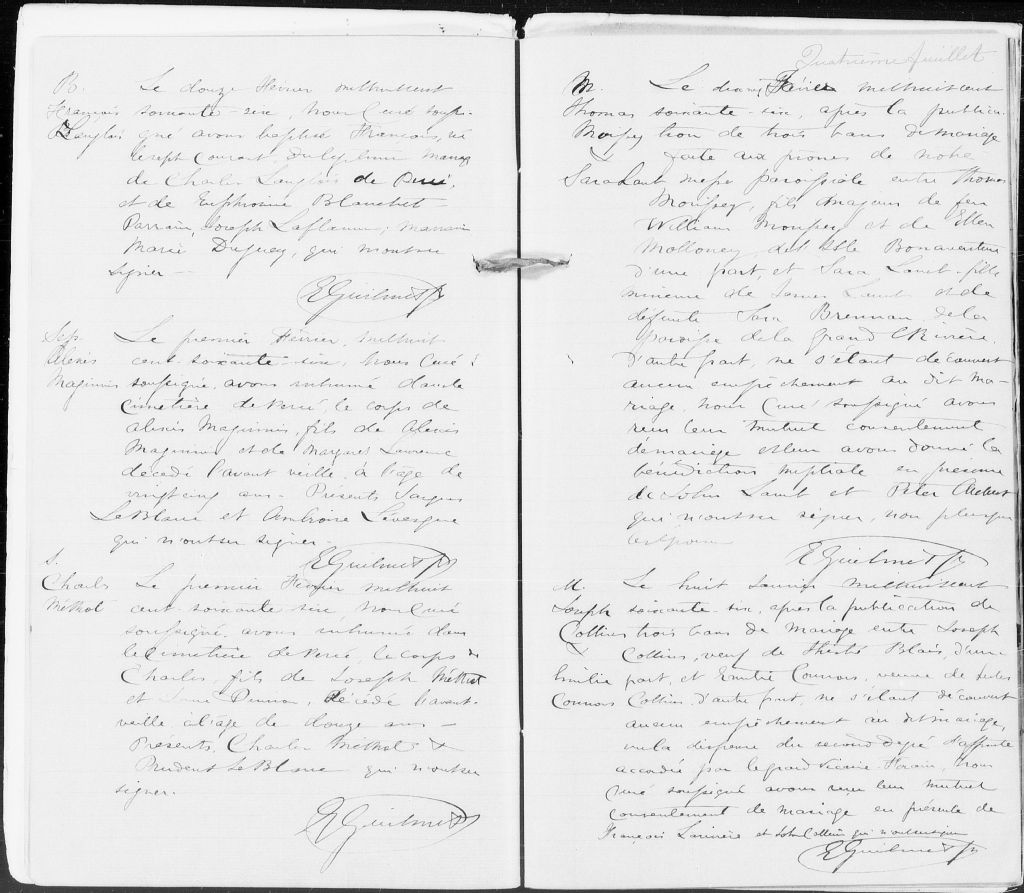 B.
François
Langlois
Le douze Février mil huit cent
soixante-six, Nous Curé soussi-
gné avons baptisé François, né
le sept Courant, du lég.
de Charles Langlois de Percé,
et de Euphrosine Blanchet
Parrain, Joseph Laflamme; Marraine
Marie Duguay, qui n'ont su
signer —
E Guilmet Ptr
Sep.
Alexis
Maginnis
Le premier Février, mil huit
cent soixante-six, Nous Curé
soussigné, avons inhumé dans le
Cimetière de Percé, le corps de
Alexis Maginnis, fils de Alexis
Maginnis et de Margaret Laurence
décédé l'avant veille à l'âge de
vingt cinq ans - Présents Jacques
LeBlanc et Ambroise Lévesque
qui n'ont su signer -
E Guilmet Ptr
S.
Charles
Méthot
Le premier Février mil huit
cent-soixante six nous Curé
soussigné avons inhumé dans
le Cimetière de Percé, le corps de
Charles, fils de Joseph Méthot
et décédé l'avant-
veille à l'âge de douze ans —
Présents, Charles Méthot &
Prudent LeBlanc qui n'ont su
signer.
E Guilmet Ptr
Quatrième feuillet
M.
Thomas
Morissey
&
Sara Lant
Le Février mil huit cent
soixante-six, après la publica-
tion de trois bans de mariage
faite aux prônes de notre
messe paroissiale entre Thomas
Morissey, fils majeur de feu
William Morissey et de Ellen
Molloney, de l'Isle Bonaventure
d'une part, et Sara Lamb, fille
mineure de James Lamb et de
défunte Sara Brennan, de la
Paroisse de la Grande Rivière,
D'autre part, ne s'étant découvert
aucun empêchement au dit Ma-
riage, Nous Curé soussigné avons
reçu leur mutuel consentement
de mariage et leur avons donné la
bénédiction nuptiale en présence
de John Lamb et Peter
qui n'ont su signer, non plus que
les époux
E Guilmet Ptr
M.
Joseph
Collins
&
Emilie
Connors
Le huit Janvier mil huit cent
soixante-six, après la publication de
trois bans de Mariage entre Joseph
Collins, veuf de Blais, d'une
part, et Emilie Connors, veuve de Jules
Collin d'autre part, ne s'étant découvert
aucun empêchement au dit mariage,
vu la dispense du second degré d'affinité
accordée par le grand Vicaire, Nous
Curé soussigné avons reçu leur mutuel
consentement de mariage en présence de
François Larivière et John Collin qui n'ont su signer
E Guilmet Ptr